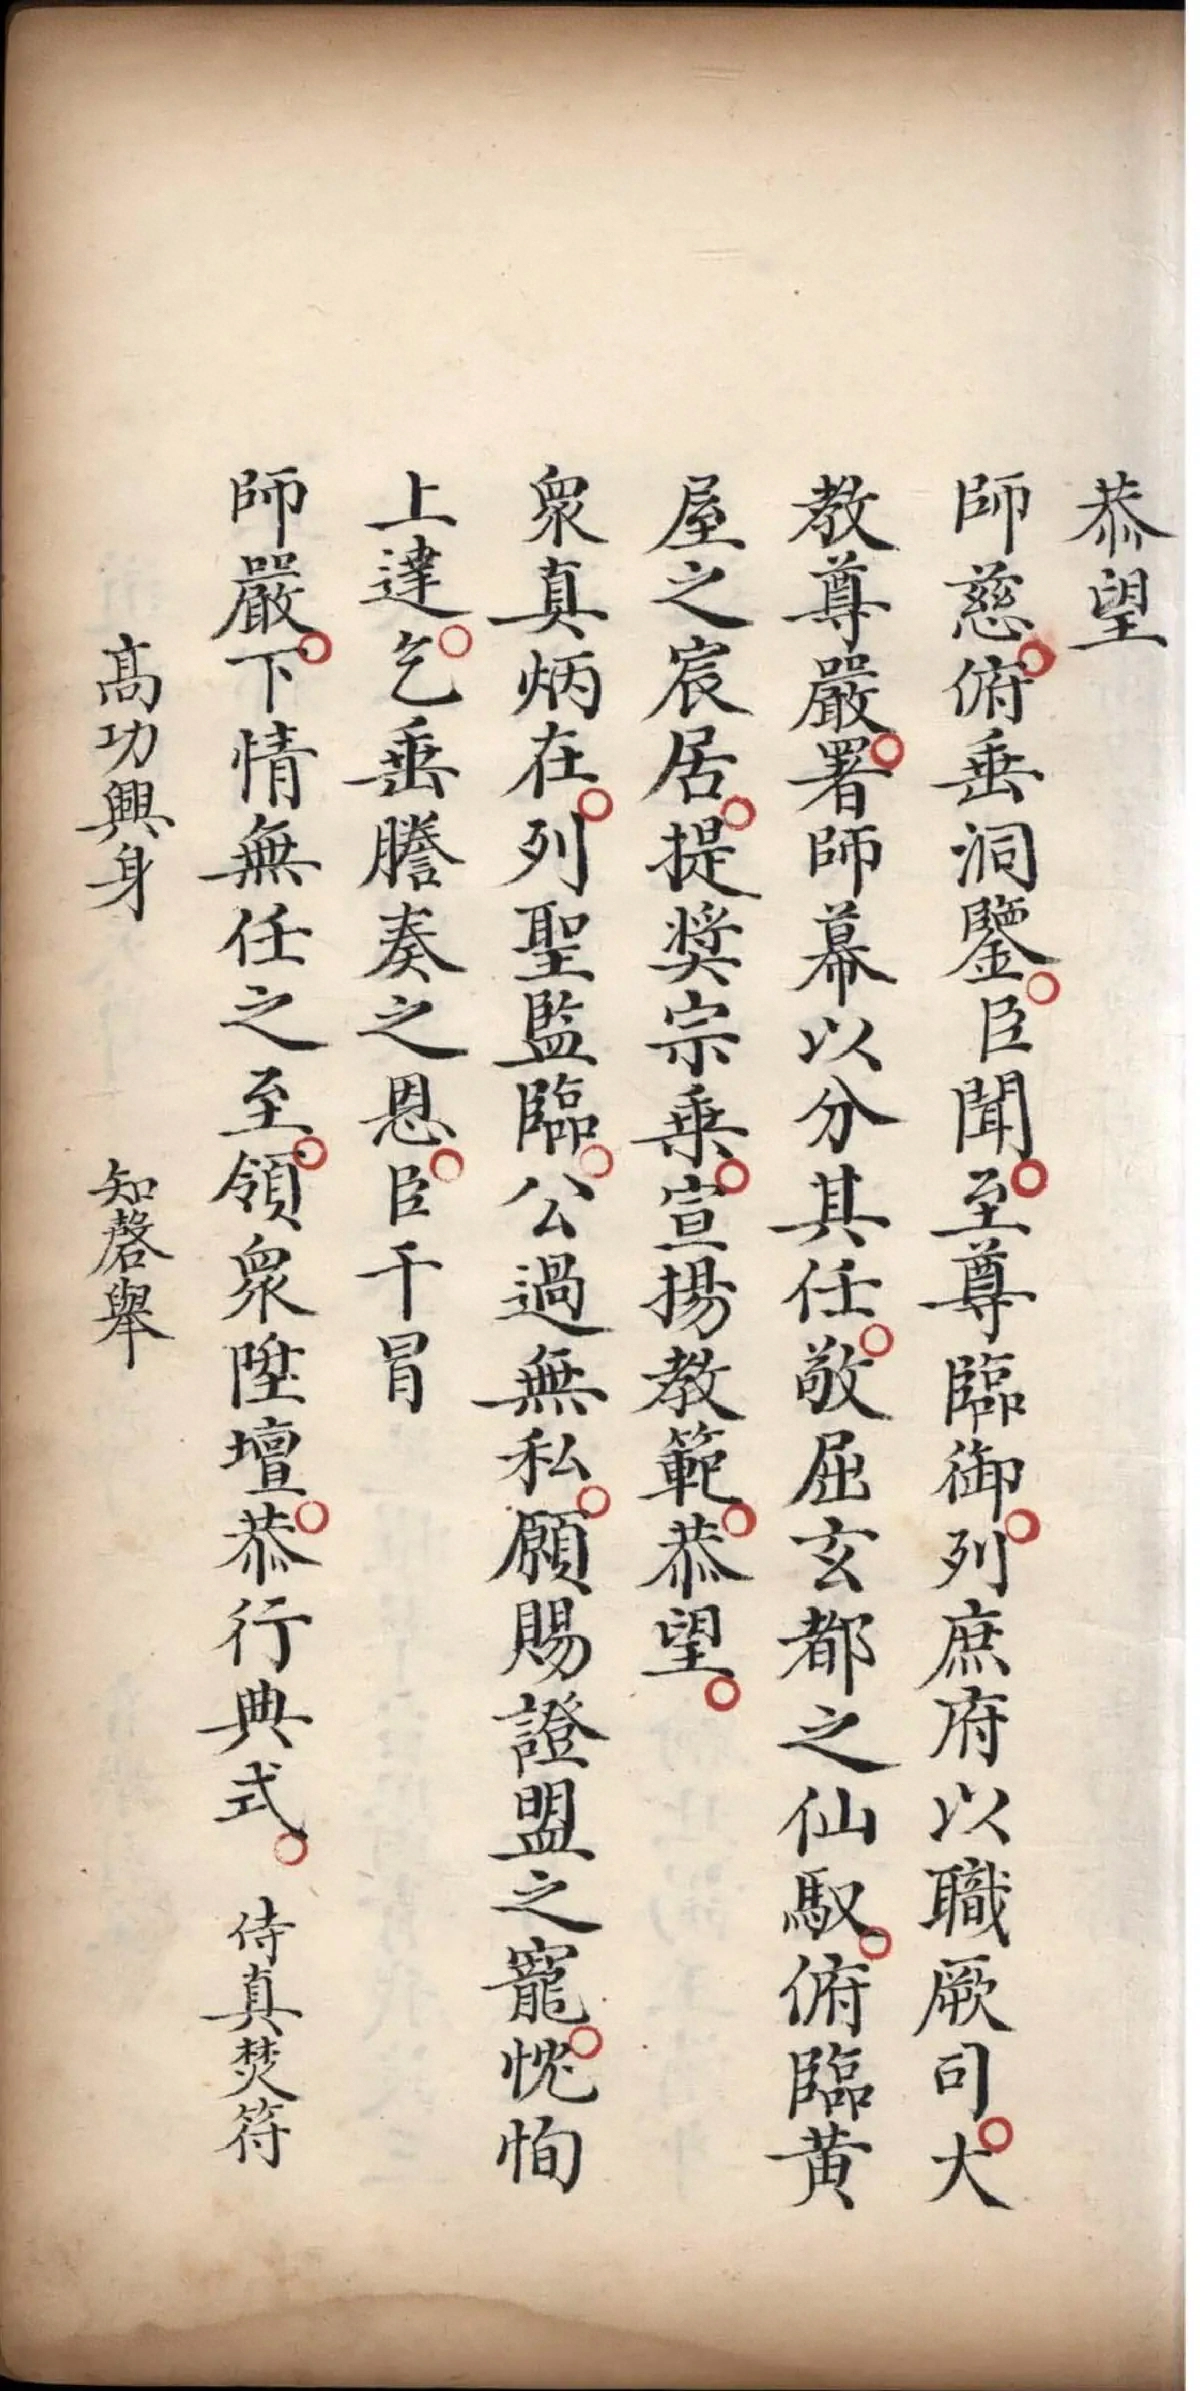 恭望
師慈俯垂洞鑒臣聞至尊臨御列庶府以職厥司大
教尊嚴署師幕以分其任敬屈玄都之仙馭俯臨黃
屋之宸居提奬宗乗宣揚教範恭望
衆真炳在列聖監臨公過無私願賜證盟之寵忱恂
上達乞垂謄奏之恩臣干冒
師嚴下情無任之至領衆陞壇恭行典式 侍真焚符
高功興身 知磬舉